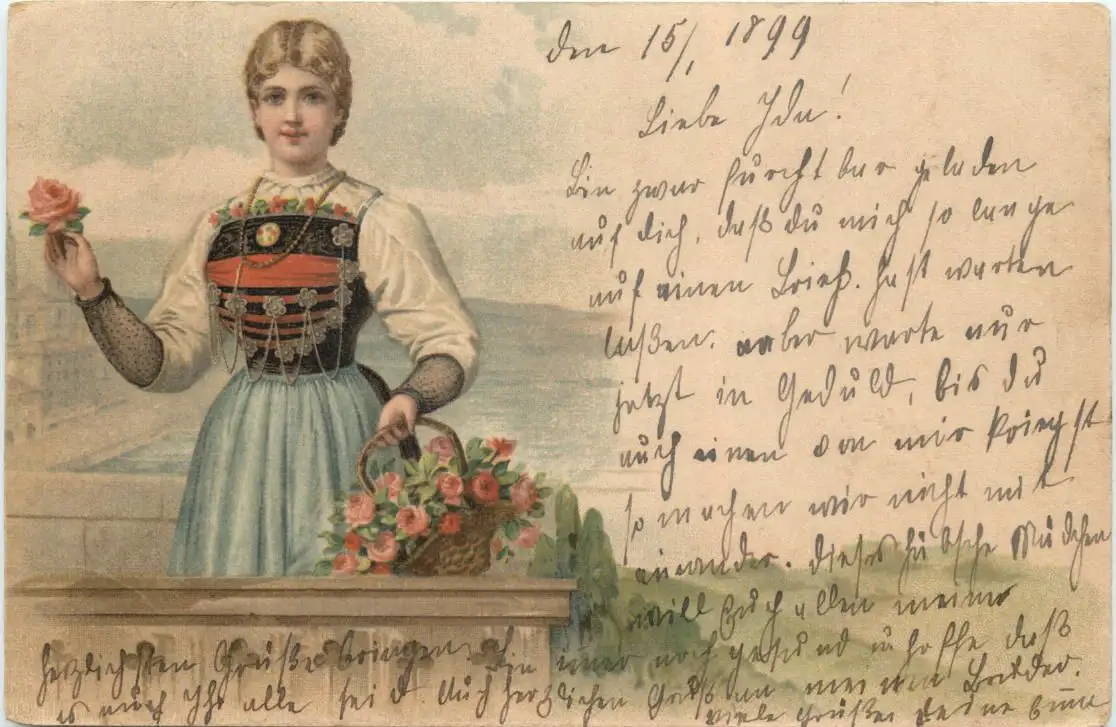 den 15/1 1899
Liebe Ida!
Bin zwar furchtbar geladen
auf dich, daß du mich so lange
auf einen Brief. hast warten
laßen. aber warte nur
jetzt in Geduld, bis du
auch einen von mir kriegst
so machen wir nicht mit
einander. dieses hübsche Mädchen
will Euch allen meine
herzlichsten Grüße bringen. Bin immer noch gesund u hoffe daß
es auch Ihr alle seid. Auch herzlichen Gruß an meinen Bruder.
viele Grüße deine